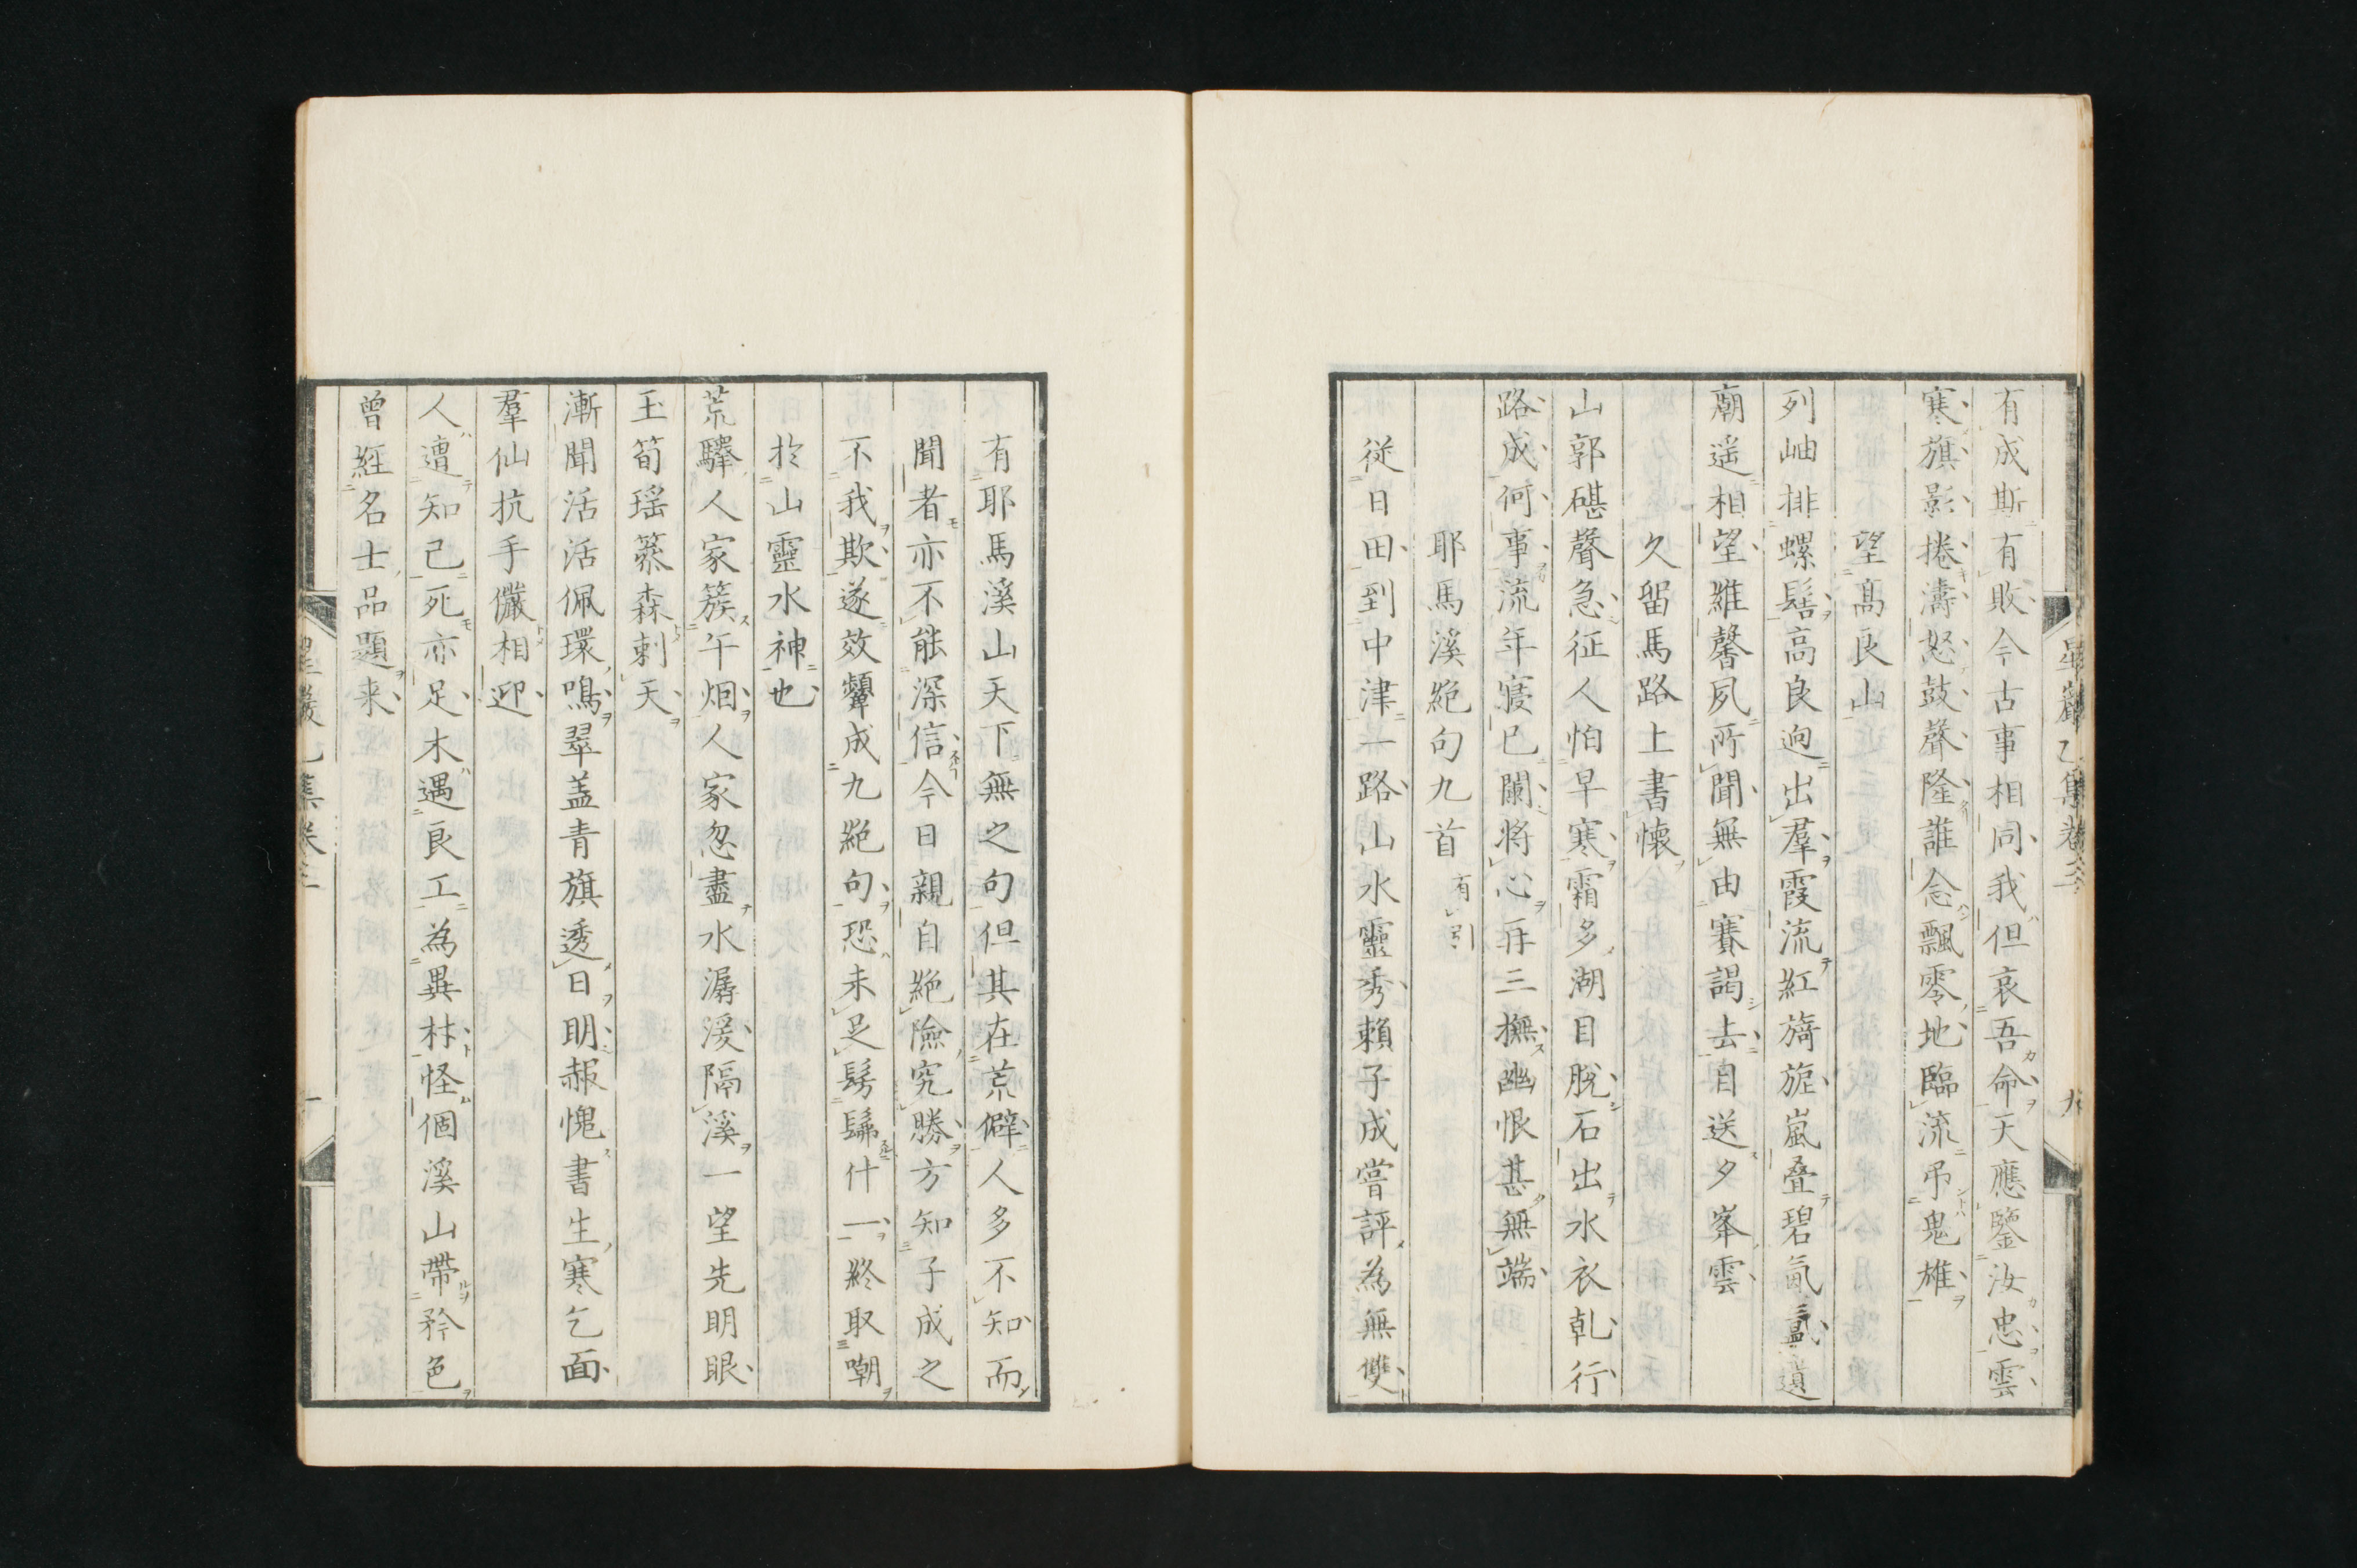 有成斯有敗今古事相同我但哀吾命天應鑒汝忠雲
寒旗影捲濤怒鼓聲隆誰念飄零地臨流弔鬼雄
望髙良山
列岫排螺髻高良逈出羣霞流紅旖旎嵐疊碧氤氳遺
廟遥相望維馨夙所聞無由賽謁去自送夕峯雲
久留馬路上書懷
山郭碪聲急征人怕早寒霜多湖目脱石出水衣乹行
路成何事流年寖已闌将心再三撫幽恨甚無端
耶馬溪絶句九首 有引
従日田到中津一路山水靈秀賴子成嘗評為無雙
有耶馬溪山天下無之句但其在荒僻人多不知而
聞者亦不能深信今日親自絶險究勝方知子成之
不我欺遂效顰成九絶句恐未足髣髴什一終取嘲
於山靈水神也
荒驛人家簇午烟人家忽盡水潺湲隔溪一望先明眼
玉筍瑶篸森刺天
漸聞活活佩環鳴翠盖青旗透日明赧愧書生寒乞面
羣仙抗手儼相迎
人遭知己死亦足木遇良工為異材怪個溪山帶矜色
曾経名士品題来
星巖乙集卷三
九